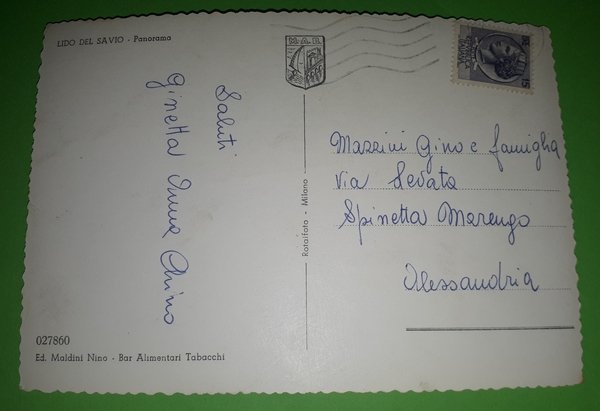 LIDO DEL SAVIO - Panorama
Saluti
Ginetta Anna Chino
Rotalfoto - Milano
Mazzini Gino e famiglia
Via Levata
Spinetta Marengo
Alessandria
027860
Ed. Maldini Nino - Bar Alimentari Tabacchi